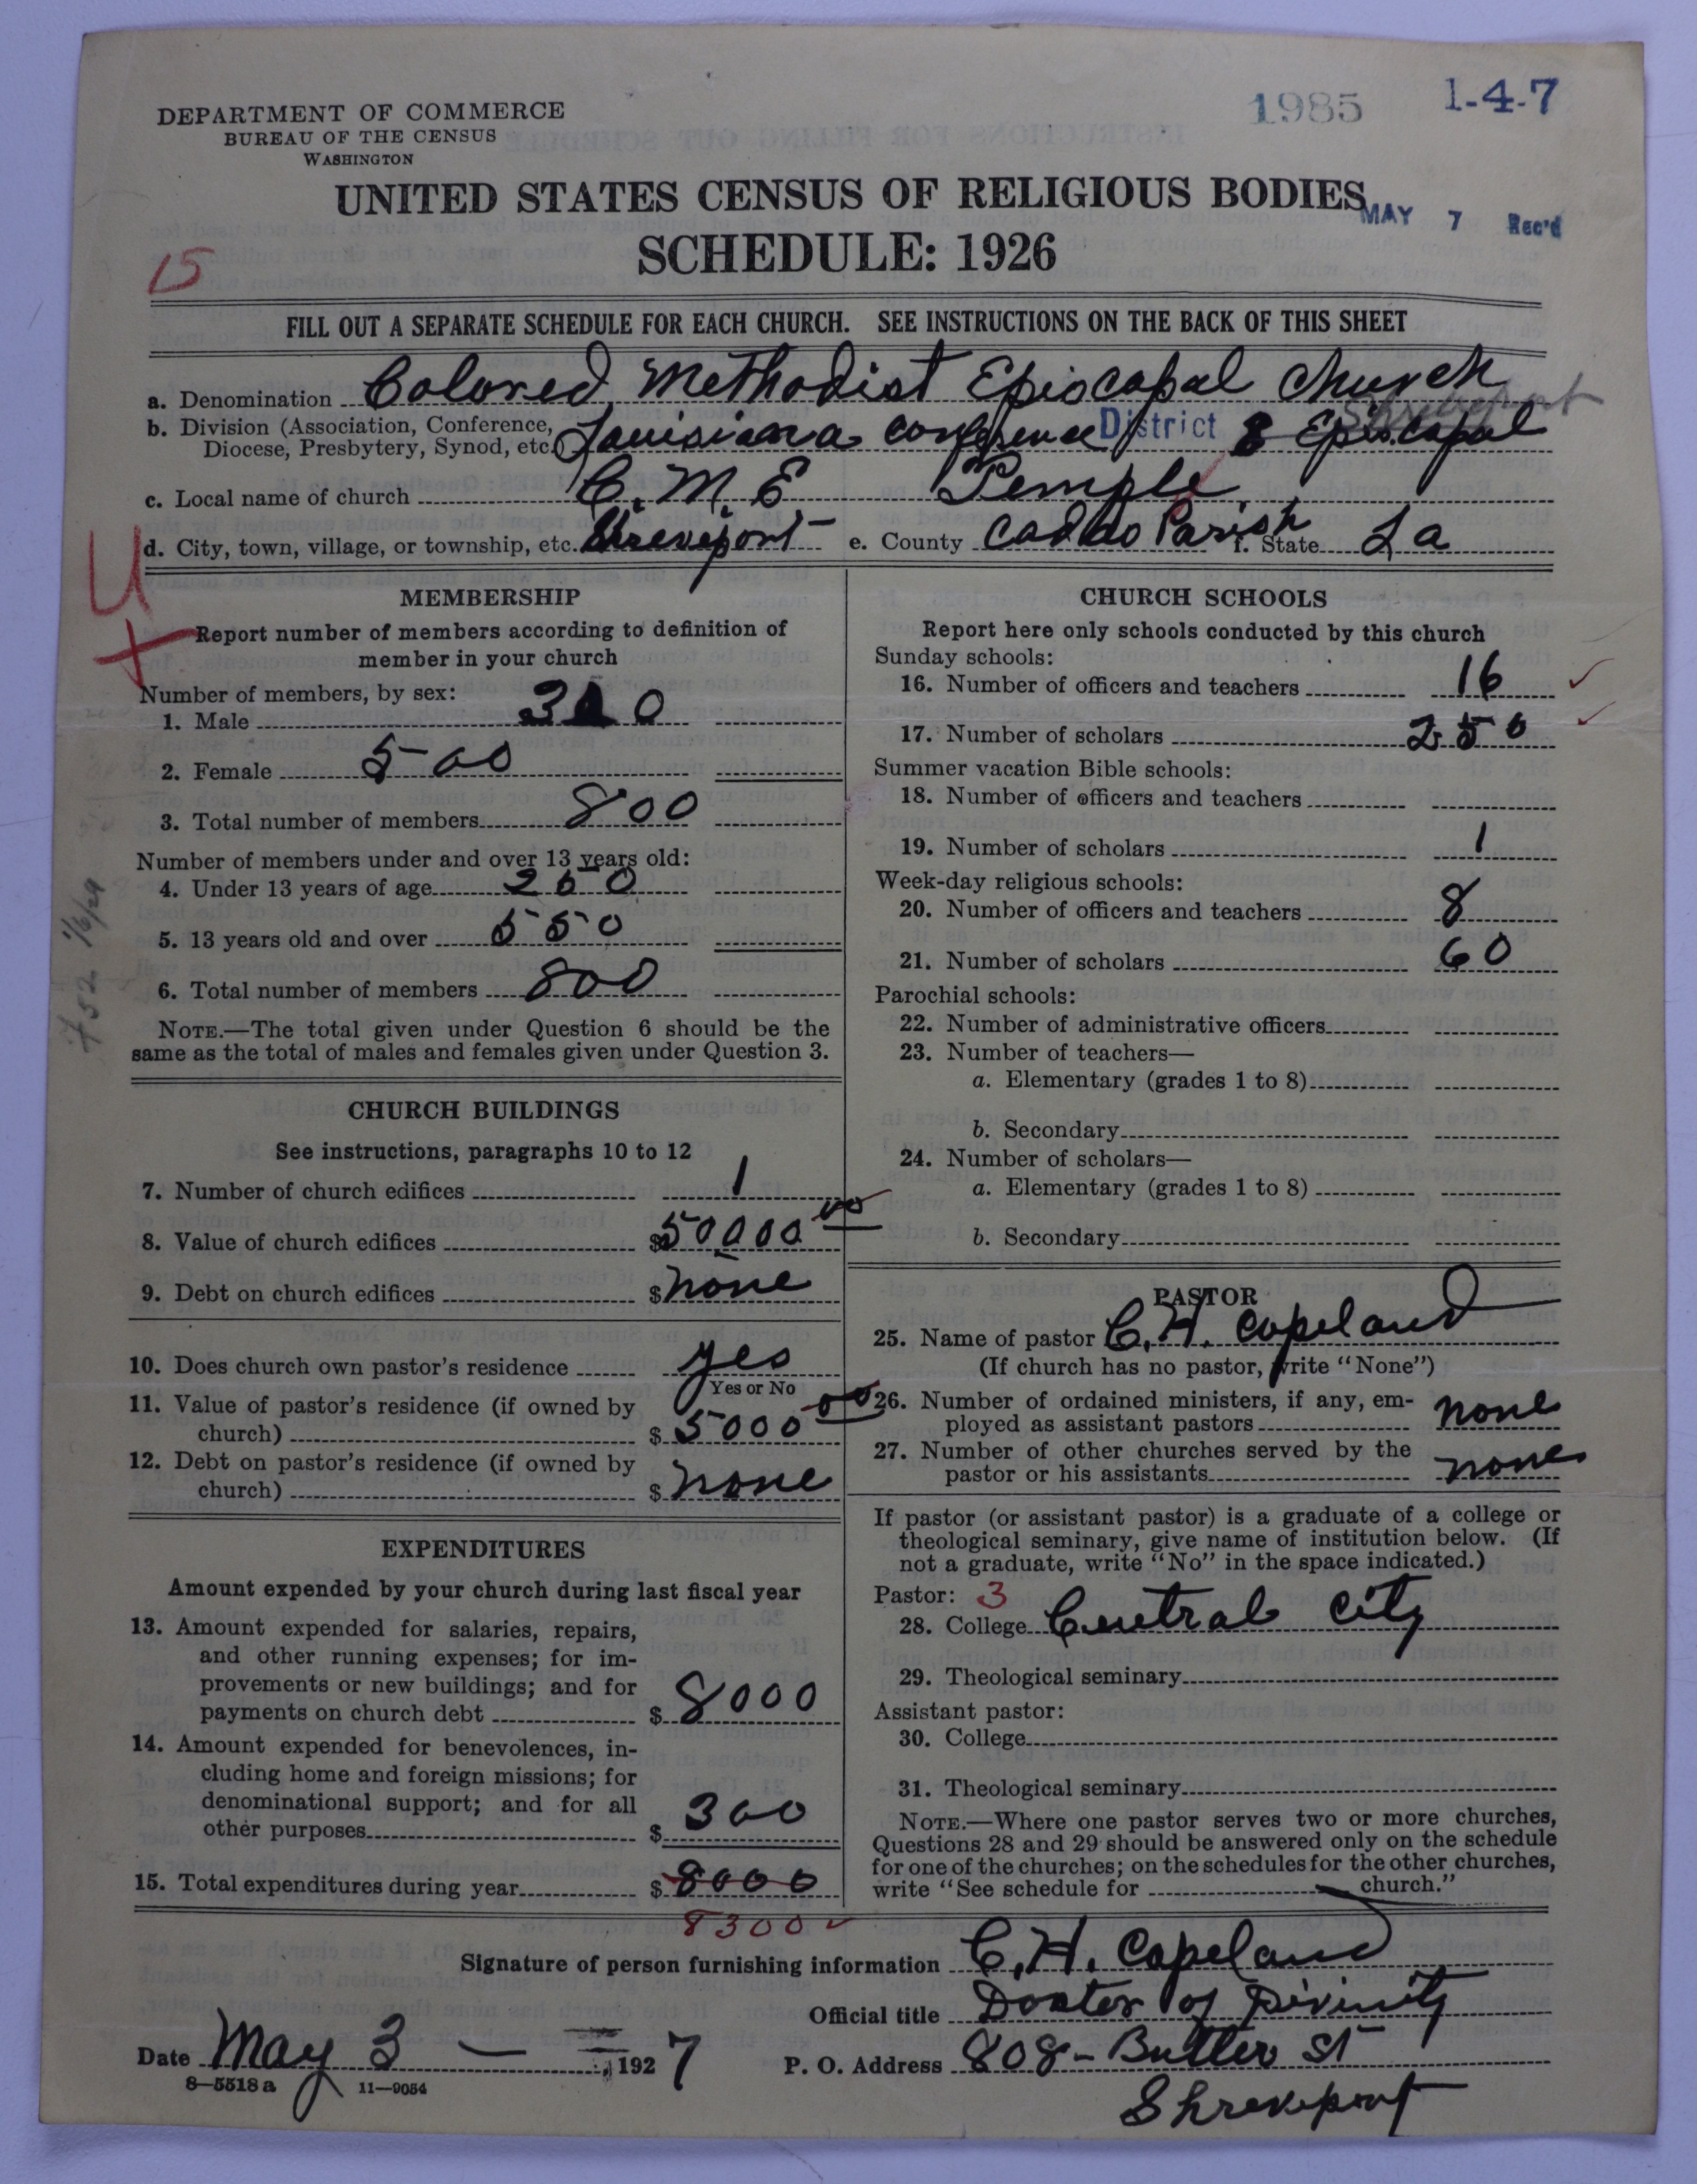 1985 1-4-7
DEPARTMENT OF COMMERCE
BUREAU OF THE CENSUS
WASHINGTON
UNITED STATES CENSUS OF RELIGIOUS BODIES
MAY 7 Rec'd
SCHEDULE: 1926
15
FILL OUT A SEPARATE SCHEDULE FOR EACH CHURCH. SEE INSTRUCTIONS ON THE BACK OF THIS SHEET
a. Denomination Colored Methodist Episcopal Church
Shreveport
b. Division (Association, Conference, Diocese, Presbytery, Synod, etc.) Louisiana conference District 8 Episcopal
c. Local name of church C. M. E Temple
d. City, town, village, or township, etc. Shreveport e. County Caddo Parish f. State La
U
MEMBERSHIP
Report number of members according to definition of
member in your church
Number of members, by sex:
1. Male 300
2. Female 500
3. Total number of members 800
Number of members under and over 13 years old:
4. Under 13 years of age 250
5. 13 years old and over 550
6. Total number of members 800
NOTE.—The total given under Question 6 should be the
same as the total of males and females given under Question 3.
CHURCH BUILDINGS
See instructions, paragraphs 10 to 12
7. Number of church edifices 1
8. Value of church edifices $50000 00
9. Debt on church edifices $none
10. Does church own pastor's residence yes
Yes or No
11. Value of pastor's residence (if owned by
church) $5000 00
12. Debt on pastor's residence (if owned by
church) $none
EXPENDITURES
Amount expended by your church during last fiscal year
13. Amount expended for salaries, repairs,
and other running expenses; for im-
provements or new buildings; and for
payments on church debt $8000
14. Amount expended for benevolences, in-
cluding home and foreign missions; for
denominational support; and for all
other purposes $300
15. Total expenditures during year $8000
8300
CHURCH SCHOOLS
Report here only schools conducted by this church
Sunday schools:
16. Number of officers and teachers 16
17. Number of scholars 250
Summer vacation Bible schools:
18. Number of officers and teachers
19. Number of scholars 1
Week-day religious schools:
20. Number of officers and teachers 8
21. Number of scholars 60
Parochial schools:
22. Number of administrative officers
23. Number of teachers—
a. Elementary (grades 1 to 8)
b. Secondary
24. Number of scholars—
a. Elementary (grades 1 to 8)
b. Secondary
PASTOR
25. Name of pastor C. H. Copeland
(If church has no pastor, write "None")
26. Number of ordained ministers, if any, em-
ployed as assistant pastors none
27. Number of other churches served by the
pastor or his assistants none
If pastor (or assistant pastor) is a graduate of a college or
theological seminary, give name of institution below. (If
not a graduate, write "No" in the space indicated.)
Pastor: 3
28. College Central City
29. Theological seminary
Assistant pastor:
30. College
31. Theological seminary
NOTE.—Where one pastor serves two or more churches,
Questions 28 and 29 should be answered only on the schedule
for one of the churches; on the schedules for the other churches,
write "See schedule for church."
Signature of person furnishing information C. H. Copeland
Official title Doctor of Divinity
Date May 3 — , 1927 P. O. Address 808 - Butler St
Shreveport
8—5518 a 11—9054